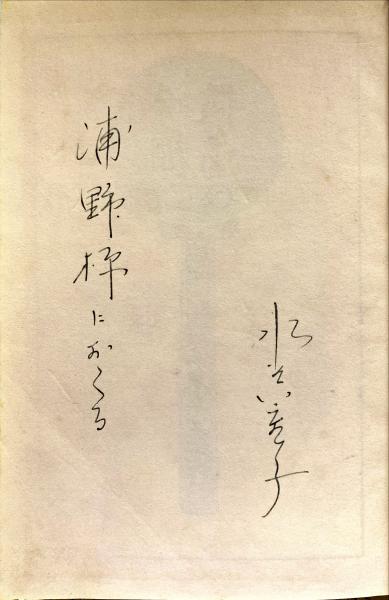 水谷八重子
浦野におくる